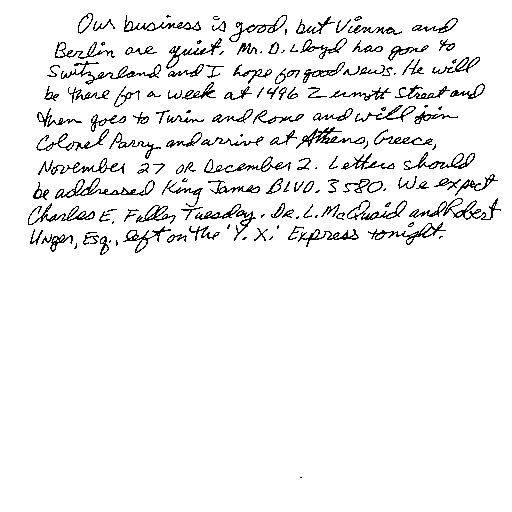 Our business is good, but Vienna and
Berlin are quiet. Mr. D. Lloyd has gone to
Switzerland and I hope for good news. He will
be there for a week at 1496 Zermott Street and
then goes to Turin and Rome and will join
Colonel Parry and arrive at Athens, Greece,
November 27 or December 2. Letters should
be addressed King James Blvd. 3580. We expect
Charles E. Fuller Tuesday. Dr. L. McQuaid and Robert
Unger, Esq., left on the 'Y.X.' Express tonight.